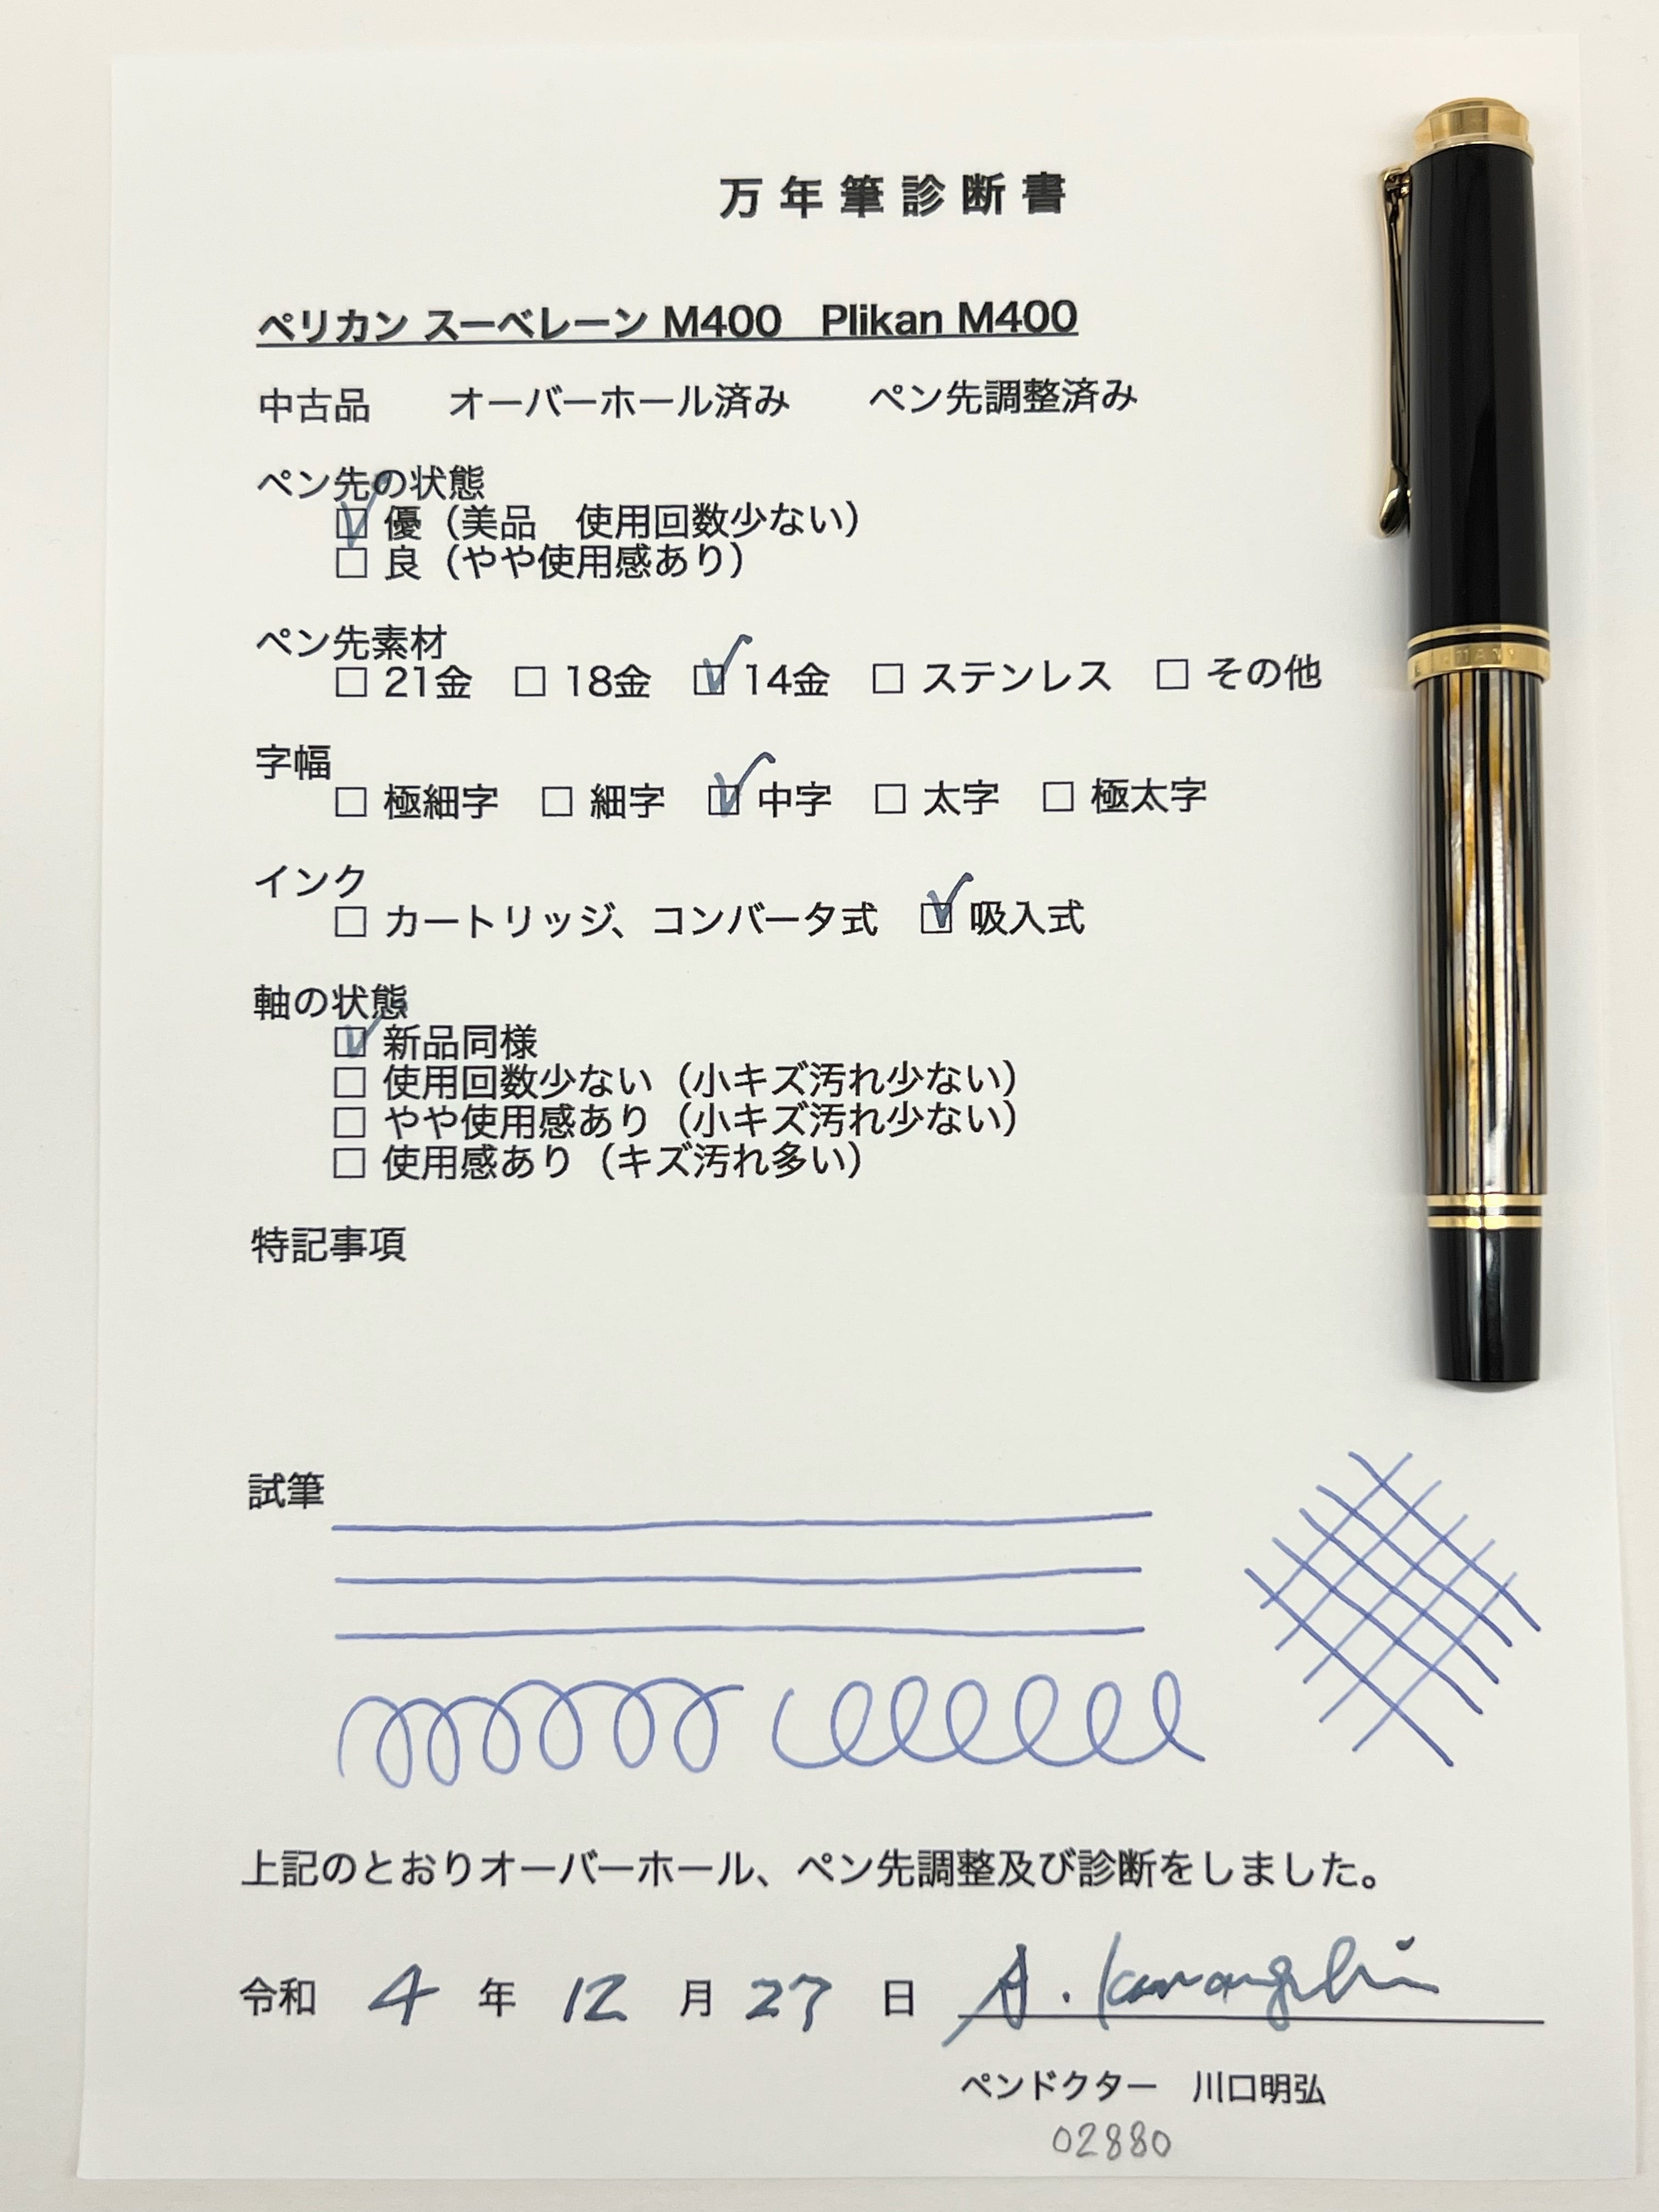 万年筆診断書
ペリカン スーベレーン M400　Plikan M400
中古品　オーバーホール済み　ペン先調整済み
ペン先の状態
☑ 優（美品　使用回数少ない）
☐ 良（やや使用感あり）
ペン先素材
☐ 21金 ☐ 18金 ☑ 14金 ☐ ステンレス ☐ その他
字幅
☐ 極細字 ☐ 細字 ☑ 中字 ☐ 太字 ☐ 極太字
インク
☐ カートリッジ、コンバータ式 ☑ 吸入式
軸の状態
☑ 新品同様
☐ 使用回数少ない（小キズ汚れ少ない）
☐ やや使用感あり（小キズ汚れ少ない）
☐ 使用感あり（キズ汚れ多い）
特記事項
試筆
上記のとおりオーバーホール、ペン先調整及び診断をしました。
令和 4 年 12 月 27 日 A. Kawaguchi
ペンドクター　川口明弘
02880